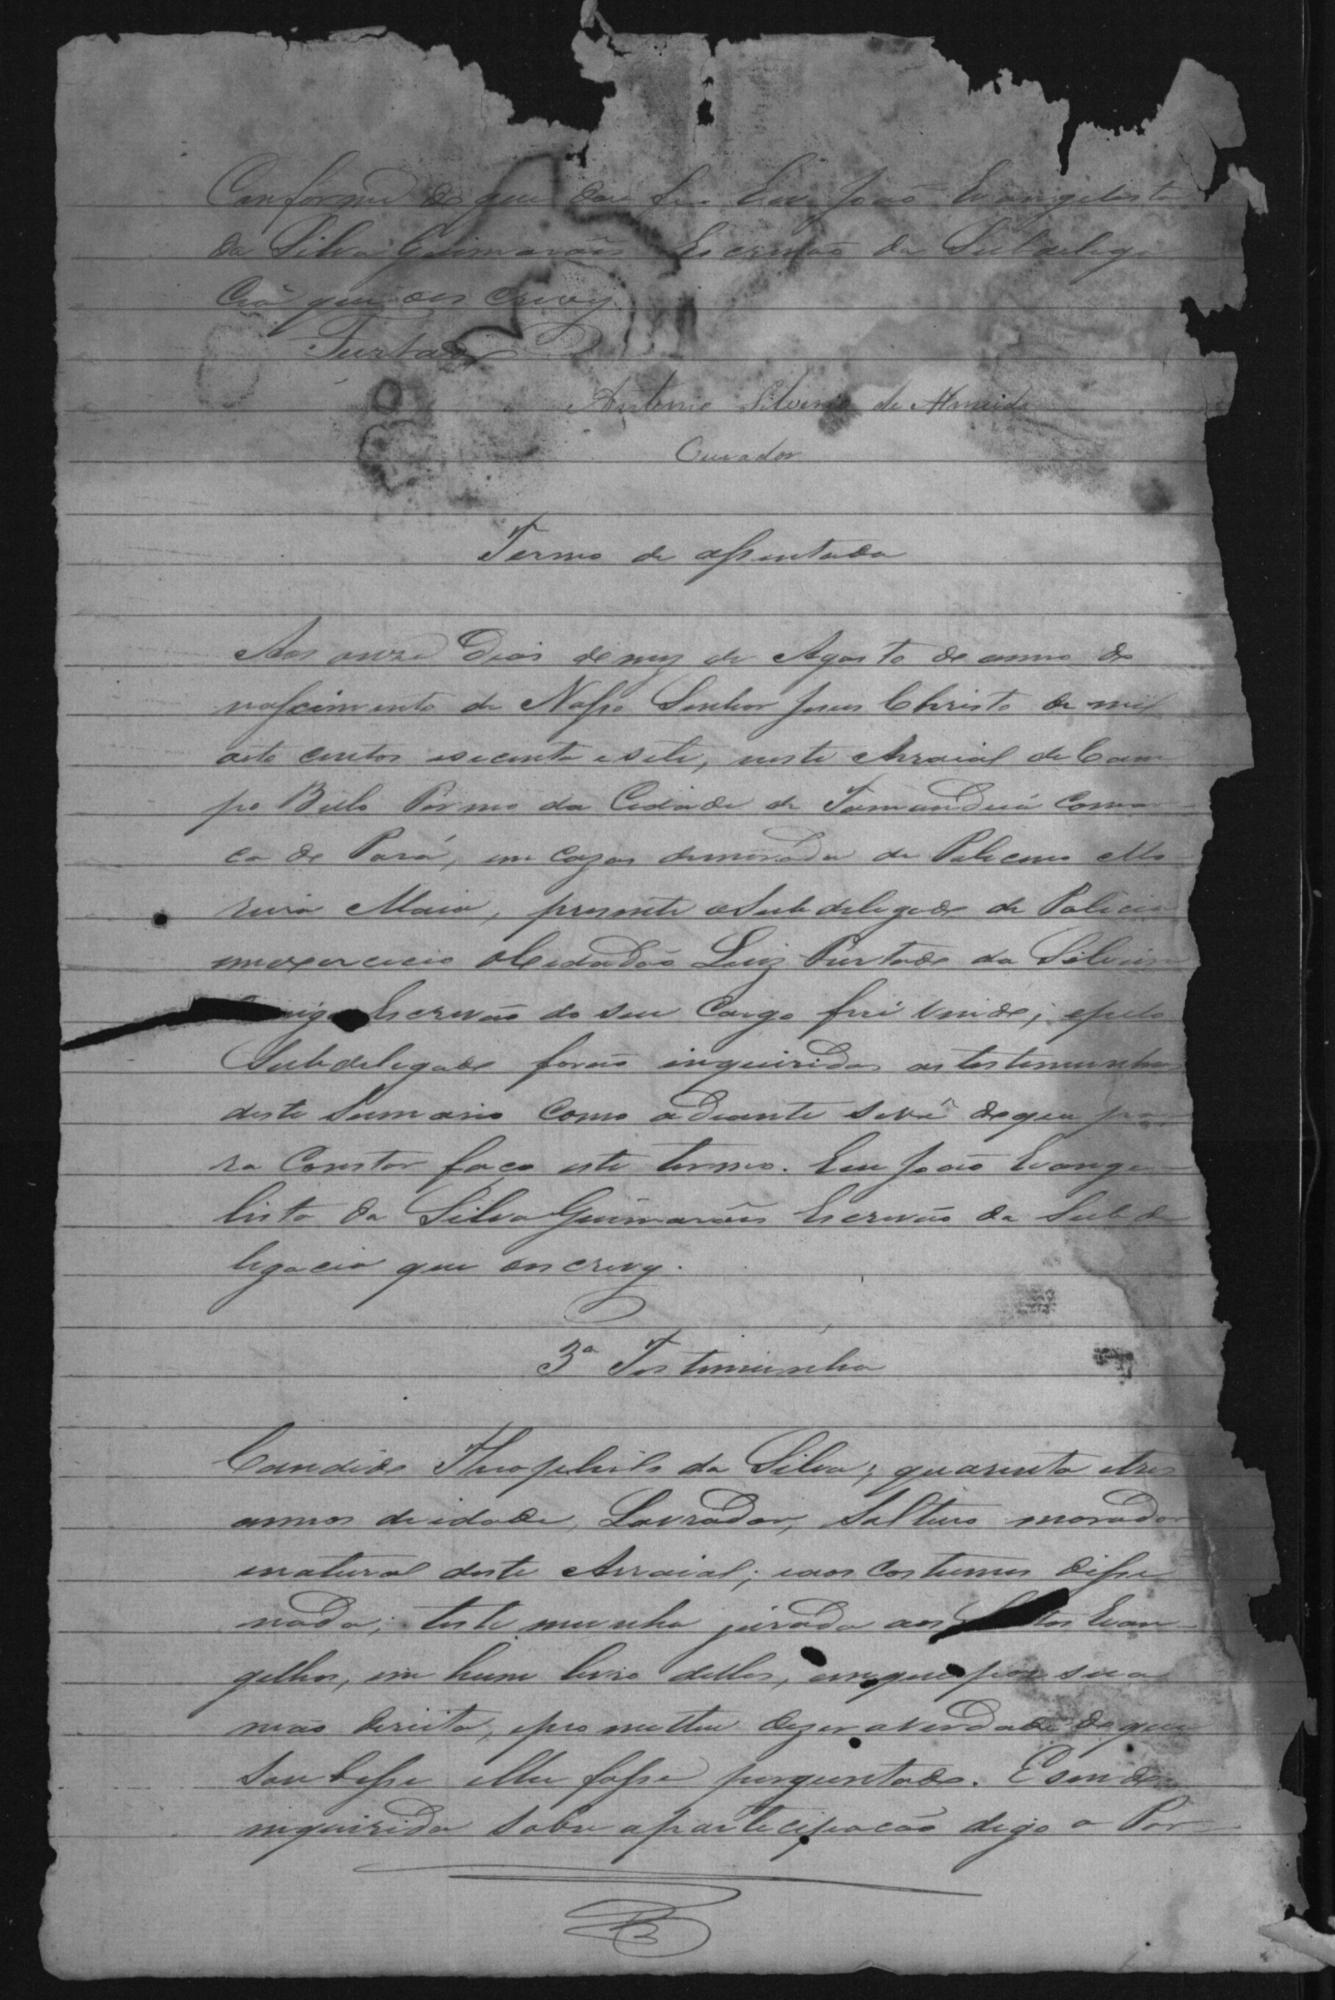 Conforme do que dou fé. Eu João Evangelista
da Silva Guimarães Escrivão da Subdelega
cia que os crevy.
Furtado
Antonio Silverio de Almeida
Curador
Termo de assentada
Aos onze dias de mez de Agosto de anno do
nascimento de Nosso Senhor Jesus Christo de mil
oito centos esecenta esete, neste Arraial de Cam
po Bello Termo da Cidade de Tamanduá Comar
ca de Pará, em cazas demorada de Policeno Mo
reira Maia, prezente o Subdelegado de Policia
emexercicio oCidadão Luiz Furtado da Silveira
Escrivão do seu Cargo fui vindo; epelo
Subdelegado forão inquiridas as testemunhas
deste Sumario como adiante severá doque pa
ra Constar faço este termo. Eu João Evange
lista da Silva Guimarães Escrivão da Subde
legacia que oescrevy.
3ª Testimunha
Candido Theophilo da Silva; quarenta etres
annos deidade, Lavrador, Solteiro morador
enatural deste Arraial; eaos costumes disse
nada; testemunha jurada aos Santos Evan-
gelhos, em hum livro delles, emque pos sua
mão direita, eprometteu dizer averdade do que
soubesse elhe fosse perguntado. Esendo
inquirido sobre aparticipação digo a Por-